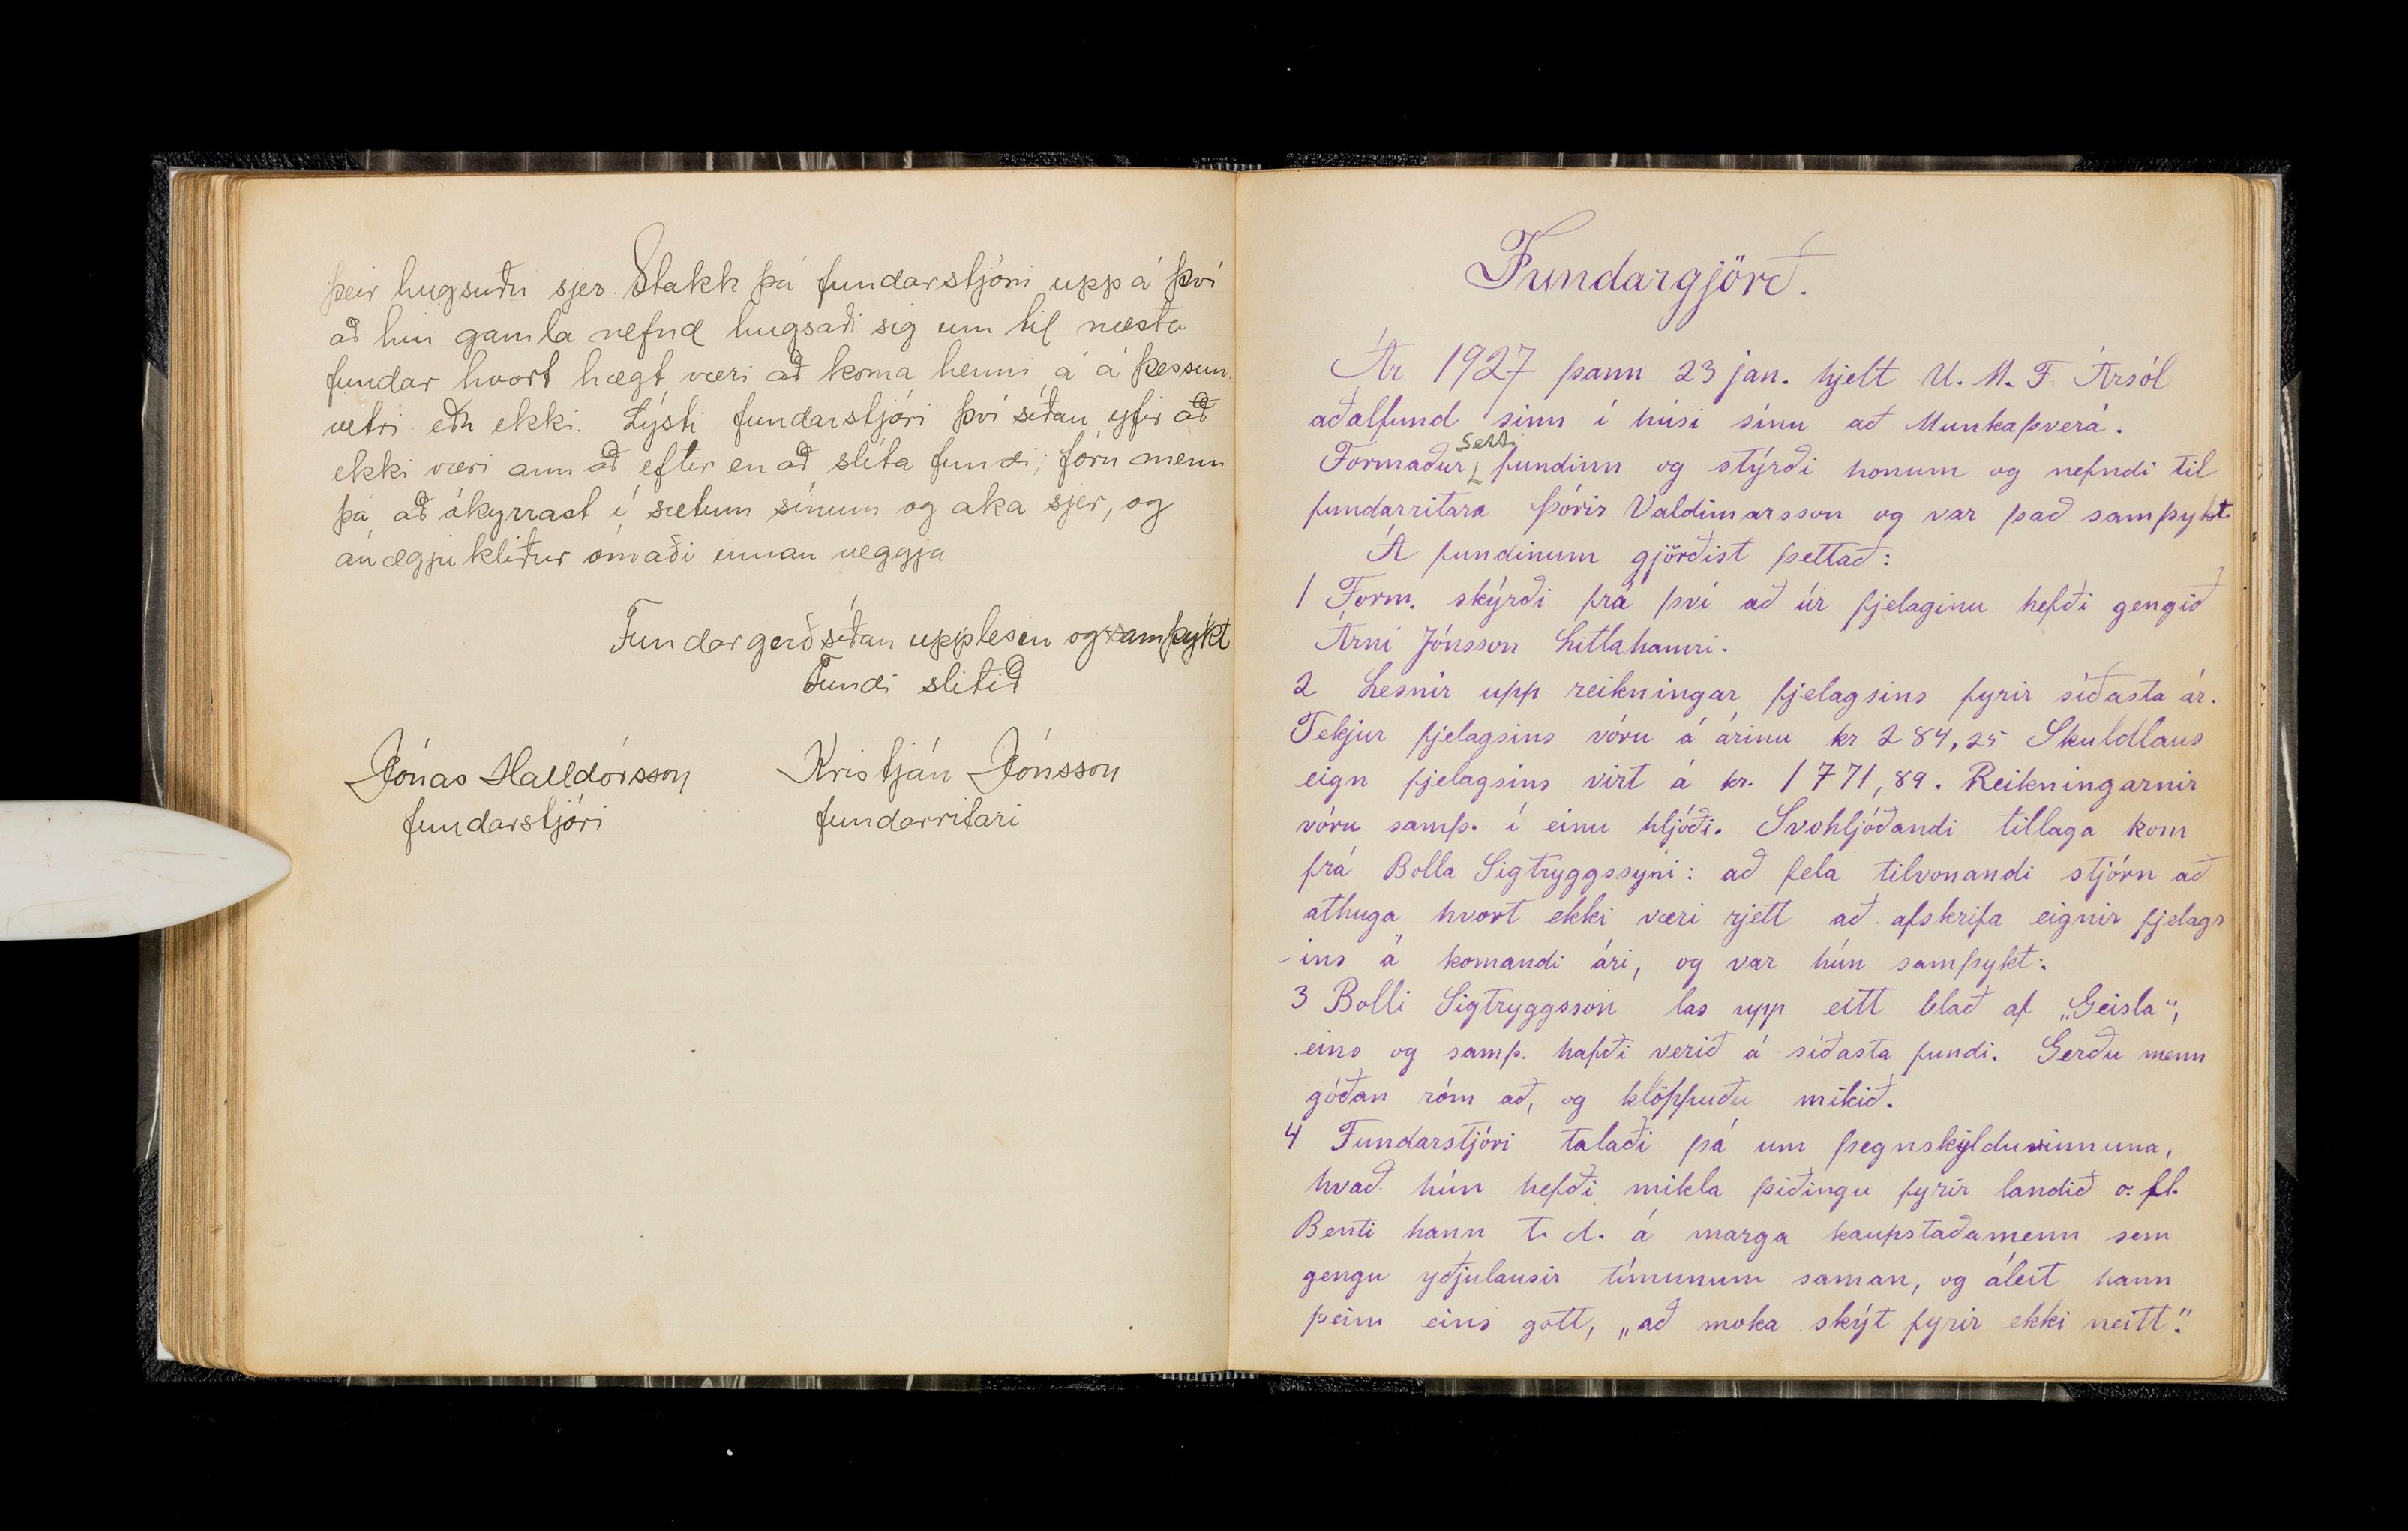 þeir hugsuðu sjer. Stakk þá fundarstjóri uppá því
að hin gamla nefnd hugsaði sig um til næsta
fundar hvort hægt væri að koma henni á á þessum
vetri eða ekki. Lýsti fundarstjóri því síðan yfir að
ekki væri annað eftir en að slíta fundi; fóru menn
þá að ókyrrast í sætum sínum og aka sjer, og
ánægju kliður ómaði innan veggja
Fundargerð síðan upplesin og samþykt
Fundi slitið
Jónas Halldórsson Kristján Jónsson
fundarstjóri fundarritari
Fundargjörð.
Ár 1927 þann 23 jan. hjelt U. M. F Ársól
aðalfund sinn í húsi sínu að Munkaþverá.
Formaður setti fundinn og stýrði honum og nefndi til
fundarritara Þórir Valdimarsson og var það samþykt
Á fundinum gjörðist þettað:
1 Form. skýrði frá því að úr fjelaginu hefði gengið
Árni Jónsson Litlahamri.
2 Lesnir upp reikningar fjelagsins fyrir síðasta ár.
Tekjur fjelagsins vóru á árinu kr 284,25 Skuldlaus
eign fjelagsins virt á kr. 1771,89. Reikningarnir
vóru samþ. í einu hljóði. Svohljóðandi tillaga kom
frá Bolla Sigtryggssyni: að fela tilvonandi stjórn að
athuga hvort ekki væri rjett að afskrifa eignir fjelags
-ins á komandi ári, og var hún samþykt.
3 Bolli Sigtryggsson las upp eitt blað af „Geisla“,
eins og samþ. hafði verið á síðasta fundi. Gerðu menn
góðan róm að, og klöppuðu mikið.
4 Fundarstjóri talaði þá um þegnskylduvinnuna,
hvað hún hefði mikla þiðingu fyrir landið o. fl.
Benti hann t. d. á marga kaupstaðamenn sem
gengu yðjulausir tímunum saman, og áleit hann
þeim eins gott, „að moka skýt fyrir ekki neitt“.